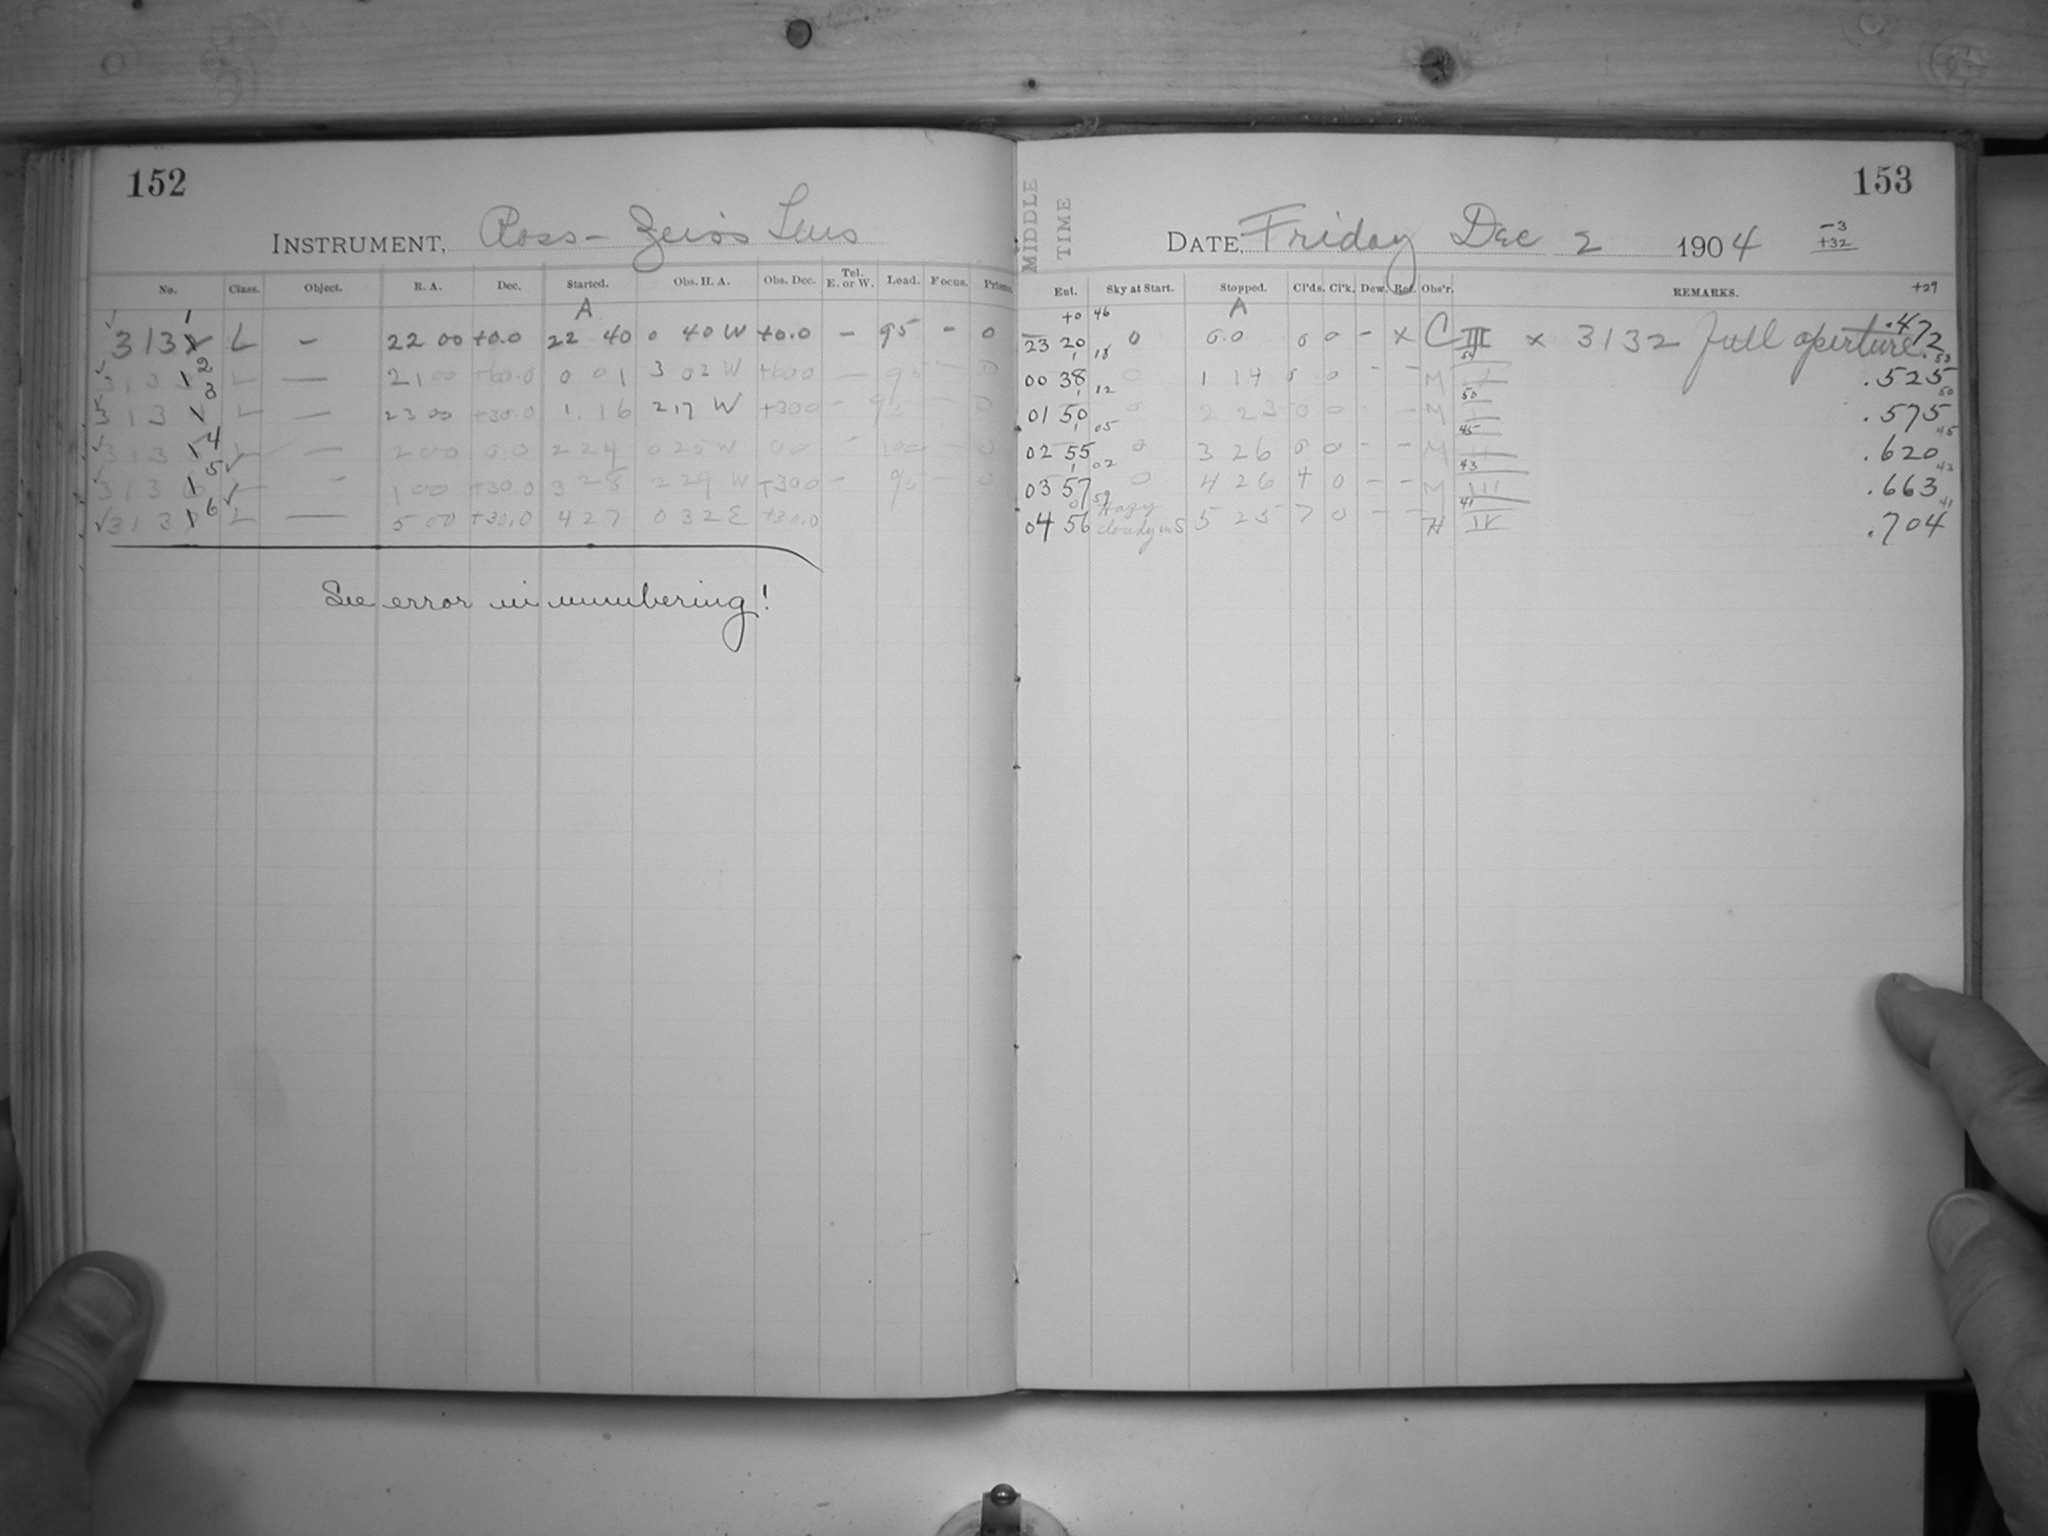 152
INSTRUMENT, Ross-Zeiss Lens
No. Class. Object. R. A. Dec. Started. Obs. H. A. Obs. Dec. Tel. E. or W. Load. Focus. Prisms.
A
313 1 L – 22 00 +0.0 22 40 0 40 W +0.0 – 95 – 0
313 2 L — 21 00 +60.0 0 01 3 02 W +60.0 — 95 — 0
313 3 L — 23 00 +30.0 1.16 2 17 W +30.0 – 95 — 0
313 4 L — 2 00 0.0 2 24 0 25 W 0.0 – 100 – 0
313 5 L – 1 00 +30.0 3 28 2 29 W +30.0 – 95 – 0
313 6 L — 5 00 +30.0 4 27 0 32 E +30.0
See error in numbering!
153
MIDDLE TIME
DATE, Friday Dec 2 1904
-3
+32
+29
Ent. Sky at Start. Stopped. Cl'ds. Cl'k. Dew. Ref. Obs'r. REMARKS.
+0 46 A
23 20 0 0.0 0 0 – x C III x 3132 full aperture .472
1 18 54 53
00 38 0 1 14 0 0 – – M I .525
1 12 50 50
01 50 0 2 23 0 0 – – M I .575
1 05 45 45
02 55 0 3 26 0 0 – – M II .620
1 02 43 43
03 57 0 4 26 + 0 – – M III .663
0 59 41 41
04 56 Hazy cloudy in S 5 25 7 0 – – H IV .704